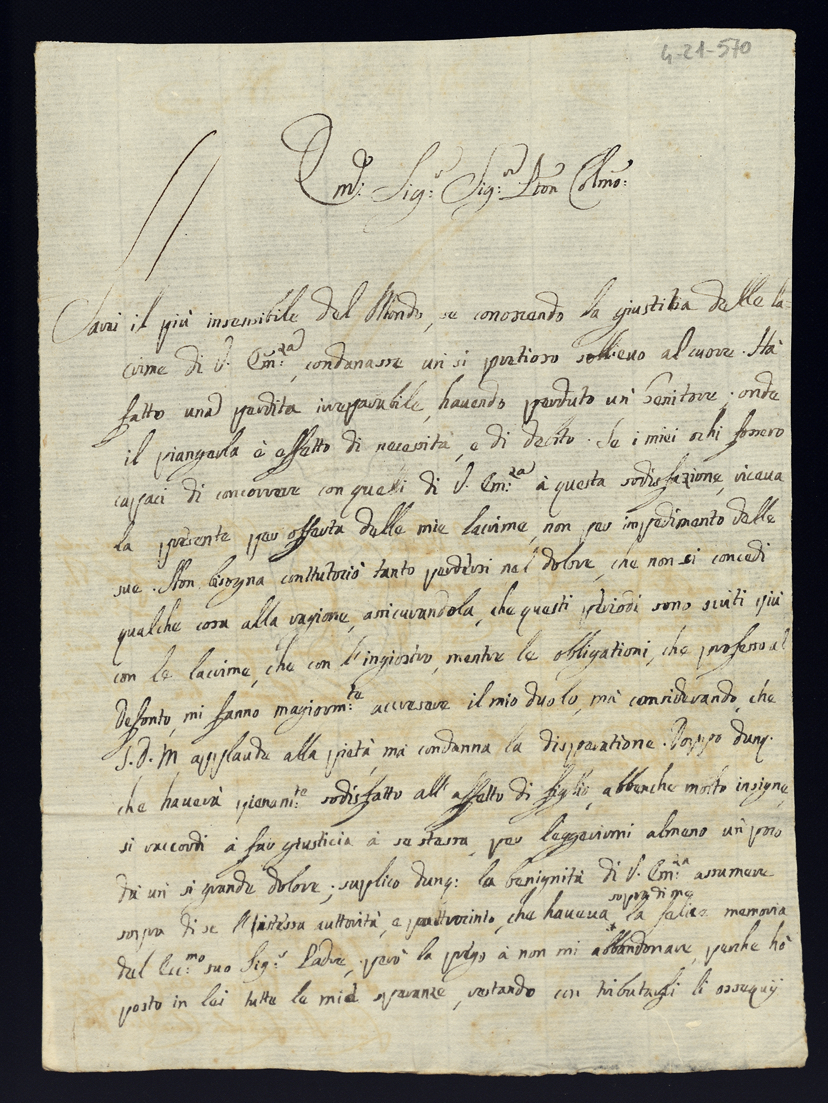 4-21-570
Em.o Sig.r Sig.r Pron Colmo:
Sarei il più insensibile del Mondo, se conoscendo la giustitia delle la-
crime di V. Em.za, condanasse un si pretioso sollieuo al cuore. Hà
fatto una perdita irreparabile, hauendo perduto un' Genitore; onde
il piangerla è effetto di necessità, e di debito. Se i miei ochi fossero
cappaci di concorrere con quelli di V. Em.za à questa sodisfazione, riceua
la presente per offerta delle mie lacrime, non per impedimento delle
sue. Non bisogna conttutociò tanto perdersi nel dolore, che non si concedi
qualche cosa alla ragione, assicurandola, che questi periodi sono scriti più
con le lacrime, che con l'ingiostro, mentre le obligationi, che professo al
Defonto, mi fanno magiorm.te accrescere il mio duolo, mà considerando, che
S. D. M applaude alla pietà, ma condanna la disperatione. Doppo dunq.
che hauerà pienam.te sodisfatto all' affetto di figlio, abbenche molto insigne,
si raccordi à far giusticia à se stessa, per leggerirmi almeno un' poco
da un' si grande dolore; suplico dunq: la benignità di V. Em.za assumere
sopra di me
sopra di se l'istessa auttorità, e pattrocinio, che haueua la felice memoria
del Ecc.mo suo Sig.r Padre, però la prego à non mi abbandonare, perche hò
posto in lei tutte le mie speranze, restando con tributargli li ossequij